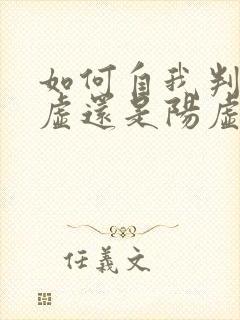 如何自我判
虛還是陽虛
任義文